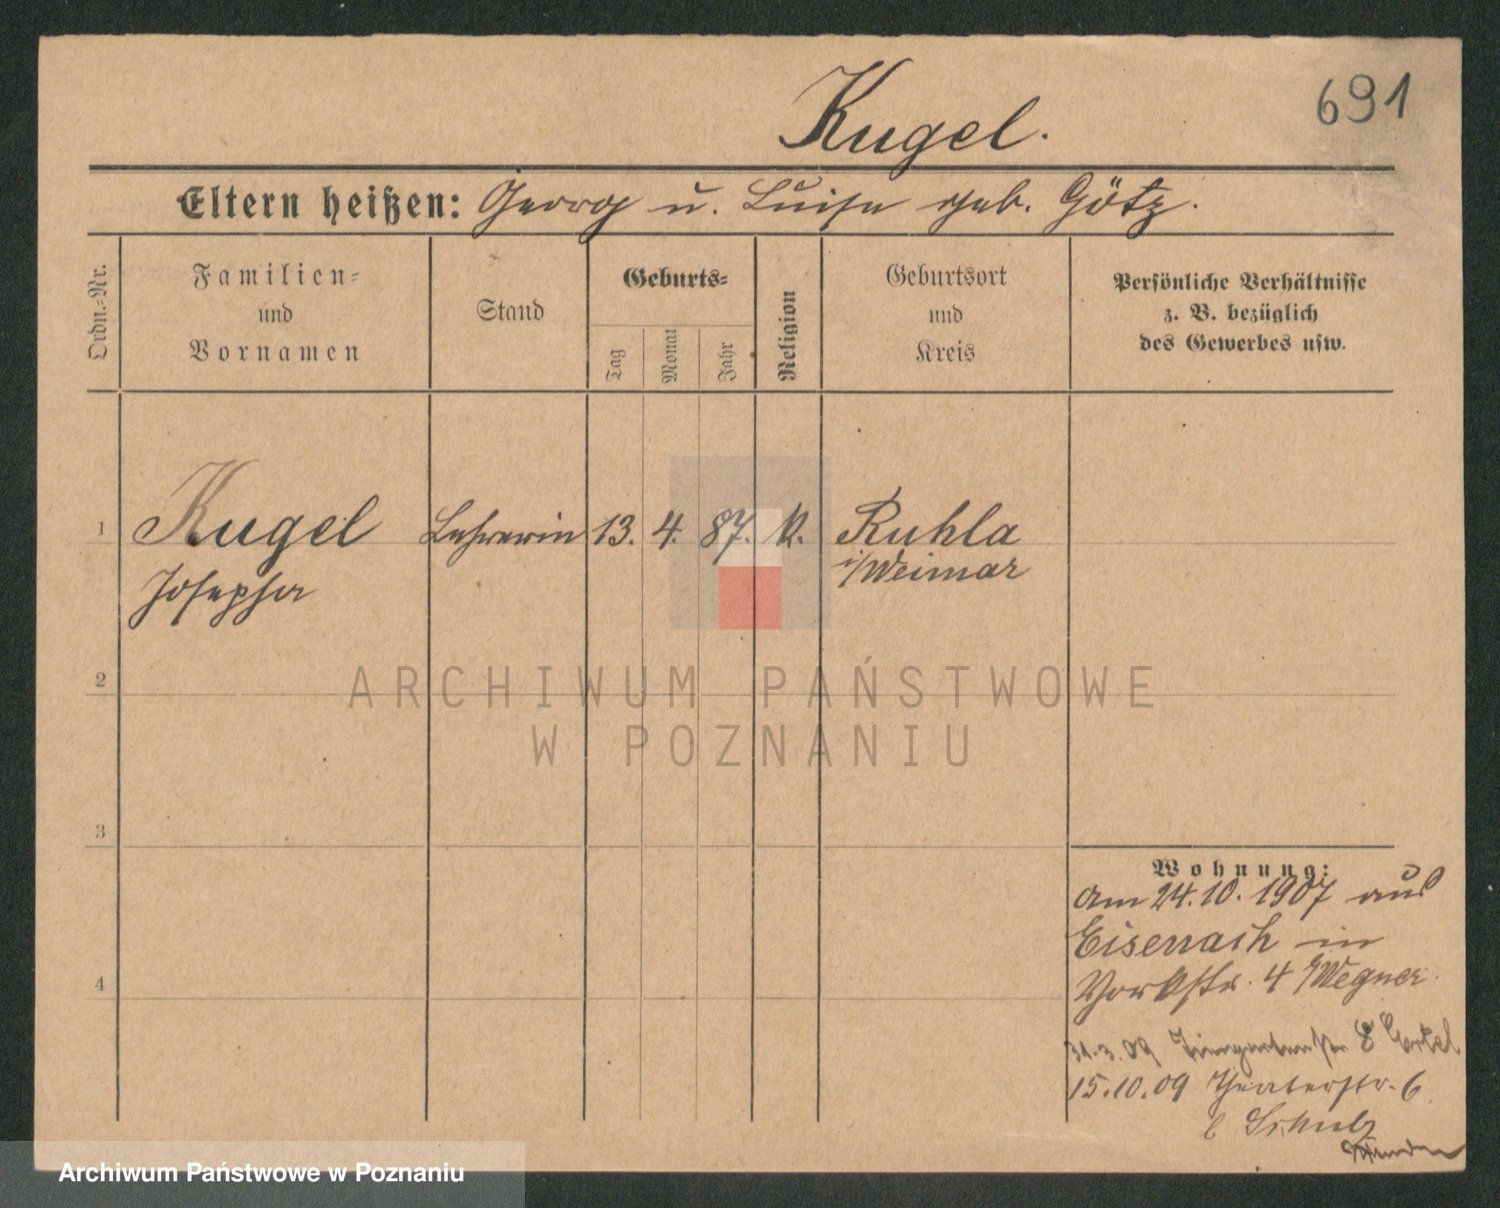 Kugel.
691
Eltern heißen: Georg u. Luise geb. Götz.
Ordn.-Nr.
Familien-
und
Vornamen
Stand
Geburts-
Tag
Monat
Jahr
Religion
Geburtsort
und
Kreis
Persönliche Verhältnisse
z. B. bezüglich
des Gewerbes usw.
1
Kugel
Josepha
Lehrerin
13.
4.
87.
k.
Ruhla
i/Weimar
2
ARCHIWUM PAŃSTWOWE
W POZNANIU
3
4
Wohnung:
am 24.10.1907 aus
Eisenach in
Yorkstr. 4 b/Wegner.
31.3.09 Tiergartenstr 8
15.10.09 Theaterstr. 6
b Schulz
Archiwum Państwowe w Poznaniu